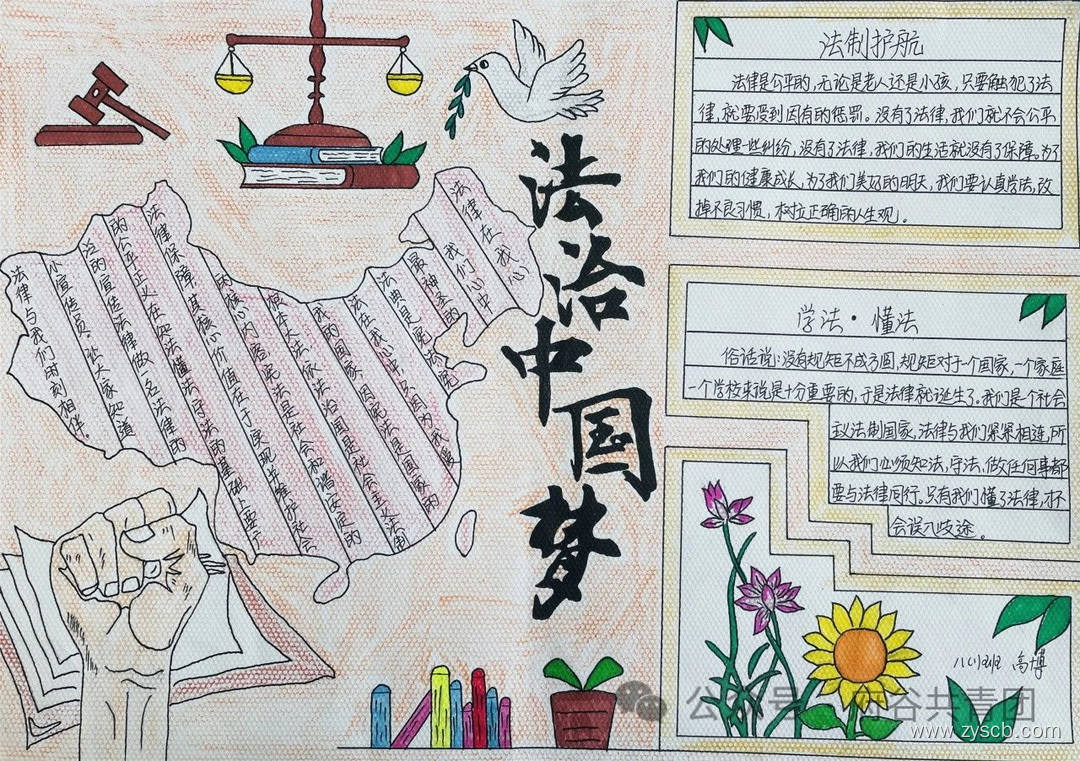 法治中国梦
法律在我心
我们心中
最神圣的
法典是宪法宪
法在我心中
我的国家因宪法是国家的
根本大法依法治国是社会主义法制
的核心内容宪法是社会和谐安定的
法律保障其核心价值在于实现并维护社会
的公平正义在知法懂法守法的基础上要
法的宣传法律做一名法律的
小宣传员，让大家知道
法律与我们时刻相伴。
法制护航
法律是公平的，无论是老人还是小孩，只要触犯了法
律，就要受到因有的惩罚。没有了法律，我们就不会公平
的处理一些纠纷，没有了法律，我们的生活就没有了保障。为了
我们的健康成长，为了我们美好的明天，我们要认真学法，改
掉不良习惯，树拉正确的人生观。
学法·懂法
俗话说：没有规矩不成方圆，规矩对于一个国家，一个家庭
一个学校来说是十分重要的，于是法律就诞生了。我们是个社会
主义法制国家，法律与我们紧紧相连，所
以我们必须知法，守法，做任何事都
要与法律同行。只有我们懂了法律，才不
会误入歧途。
八(1)班 高博
公众号·河谷共青团
www.zyscb.com